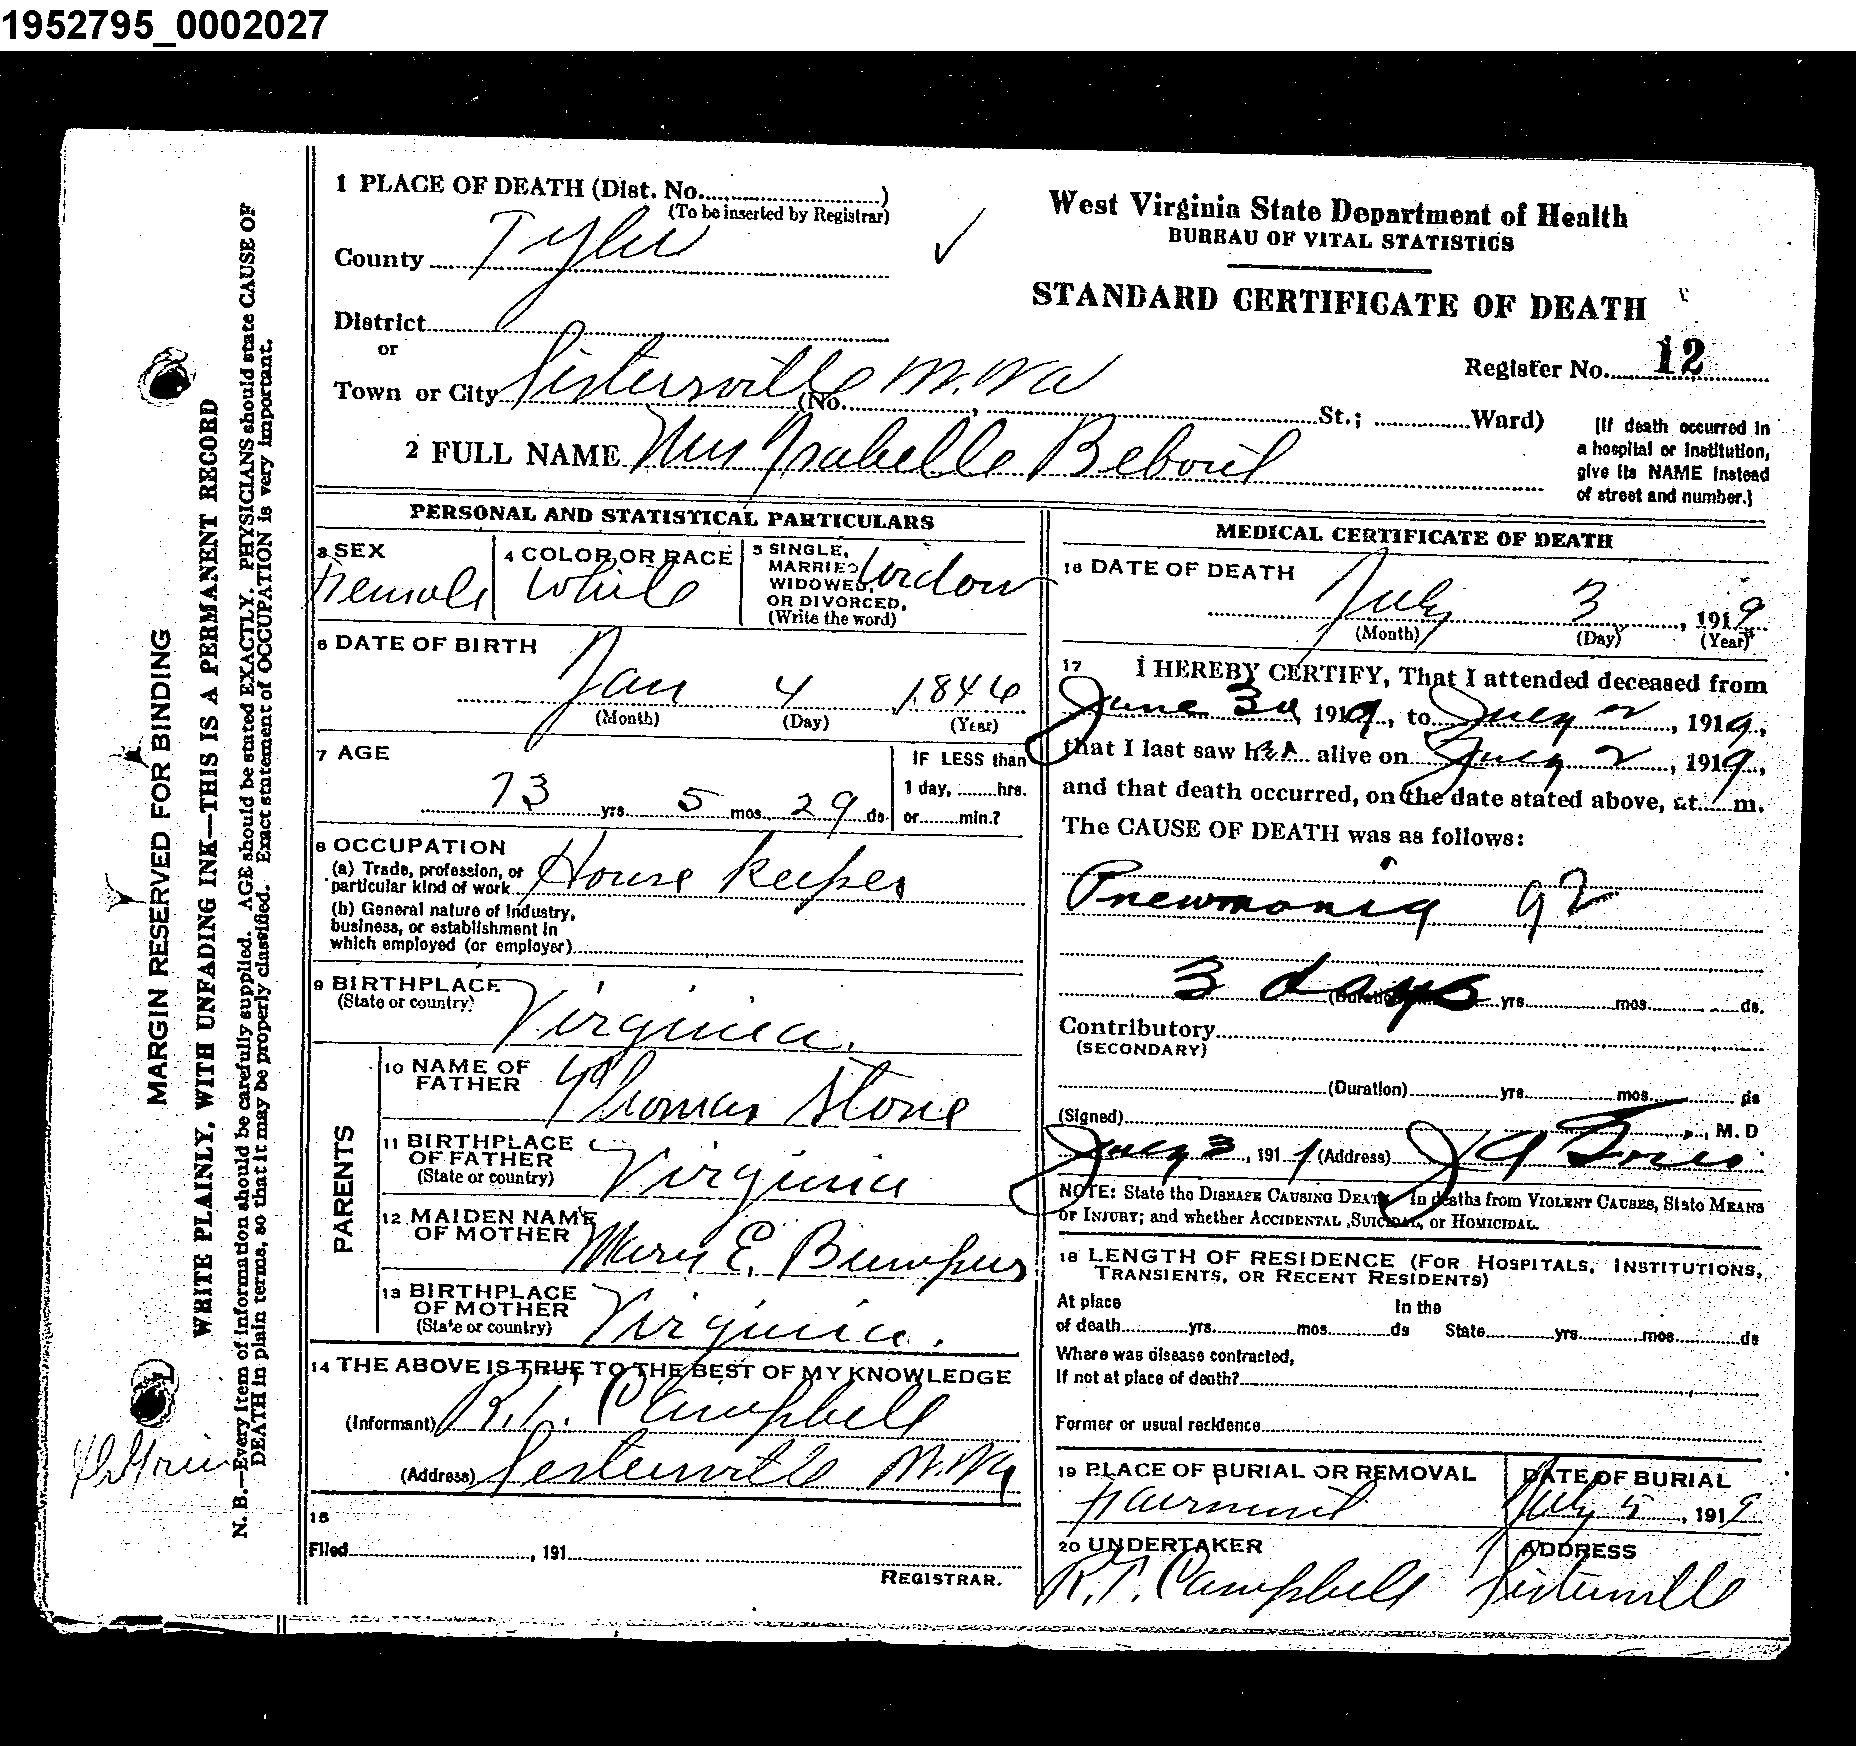 1952795_0002027
1 PLACE OF DEATH (Dist. No. )
(To be inserted by Registrar)
County Tyler
District
or
Town or City Sistersville W. Va
(No. , St.; Ward)
2 FULL NAME Mrs Isabelle Bebout
West Virginia State Department of Health
BUREAU OF VITAL STATISTICS
STANDARD CERTIFICATE OF DEATH
Register No. 12
[If death occurred in
a hospital or institution,
give its NAME instead
of street and number.]
PERSONAL AND STATISTICAL PARTICULARS
3 SEX
Female
4 COLOR OR RACE
White
5 SINGLE,
MARRIED
WIDOWED,
OR DIVORCED,
(Write the word)
Widow
6 DATE OF BIRTH
Jan 4 1846
(Month) (Day) (Year)
7 AGE
73 yrs 5 mos. 29 ds.
IF LESS than
1 day, hrs.
or min.?
8 OCCUPATION
(a) Trade, profession, or
particular kind of work House keeper
(b) General nature of Industry,
business, or establishment in
which employed (or employer)
9 BIRTHPLACE
(State or country)
Virginia.
PARENTS
10 NAME OF
FATHER
Thomas Stone
11 BIRTHPLACE
OF FATHER
(State or country)
Virginia
12 MAIDEN NAME
OF MOTHER
Mary E. Bumpus
13 BIRTHPLACE
OF MOTHER
(State or country)
Virginia.
14 THE ABOVE IS TRUE TO THE BEST OF MY KNOWLEDGE
(Informant) R. T. Campbell
(Address) Sistersville W. Va
15
Filed , 191
REGISTRAR.
MEDICAL CERTIFICATE OF DEATH
16 DATE OF DEATH
July 3, 1919
(Month) (Day) (Year)
17 I HEREBY CERTIFY, That I attended deceased from
June 30 1919, to July 2, 1919,
that I last saw her alive on July 2, 1919,
and that death occurred, on the date stated above, at m.
The CAUSE OF DEATH was as follows:
Pneumonia 92
3 days (Duration) yrs. mos. ds.
Contributory
(SECONDARY)
(Duration) yrs. mos. ds
(Signed) , M. D
July 3, 191 (Address)
NOTE: State the DISEASE CAUSING DEATH. In deaths from VIOLENT CAUSES, State MEANS
OF INJURY; and whether ACCIDENTAL, SUICIDAL, or HOMICIDAL.
18 LENGTH OF RESIDENCE (FOR HOSPITALS, INSTITUTIONS,
TRANSIENTS, OR RECENT RESIDENTS)
At place In the
of death yrs. mos. ds State yrs. mos. ds
Where was disease contracted,
If not at place of death?
Former or usual residence
19 PLACE OF BURIAL OR REMOVAL
Fairmont
DATE OF BURIAL
July 5, 1919
20 UNDERTAKER
R. T. Campbell
ADDRESS
Sistersville
MARGIN RESERVED FOR BINDING
WRITE PLAINLY, WITH UNFADING INK—THIS IS A PERMANENT RECORD
N. B.—Every item of information should be carefully supplied. AGE should be stated EXACTLY. PHYSICIANS should state CAUSE OF
DEATH in plain terms, so that it may be properly classified. Exact statement of OCCUPATION is very important.